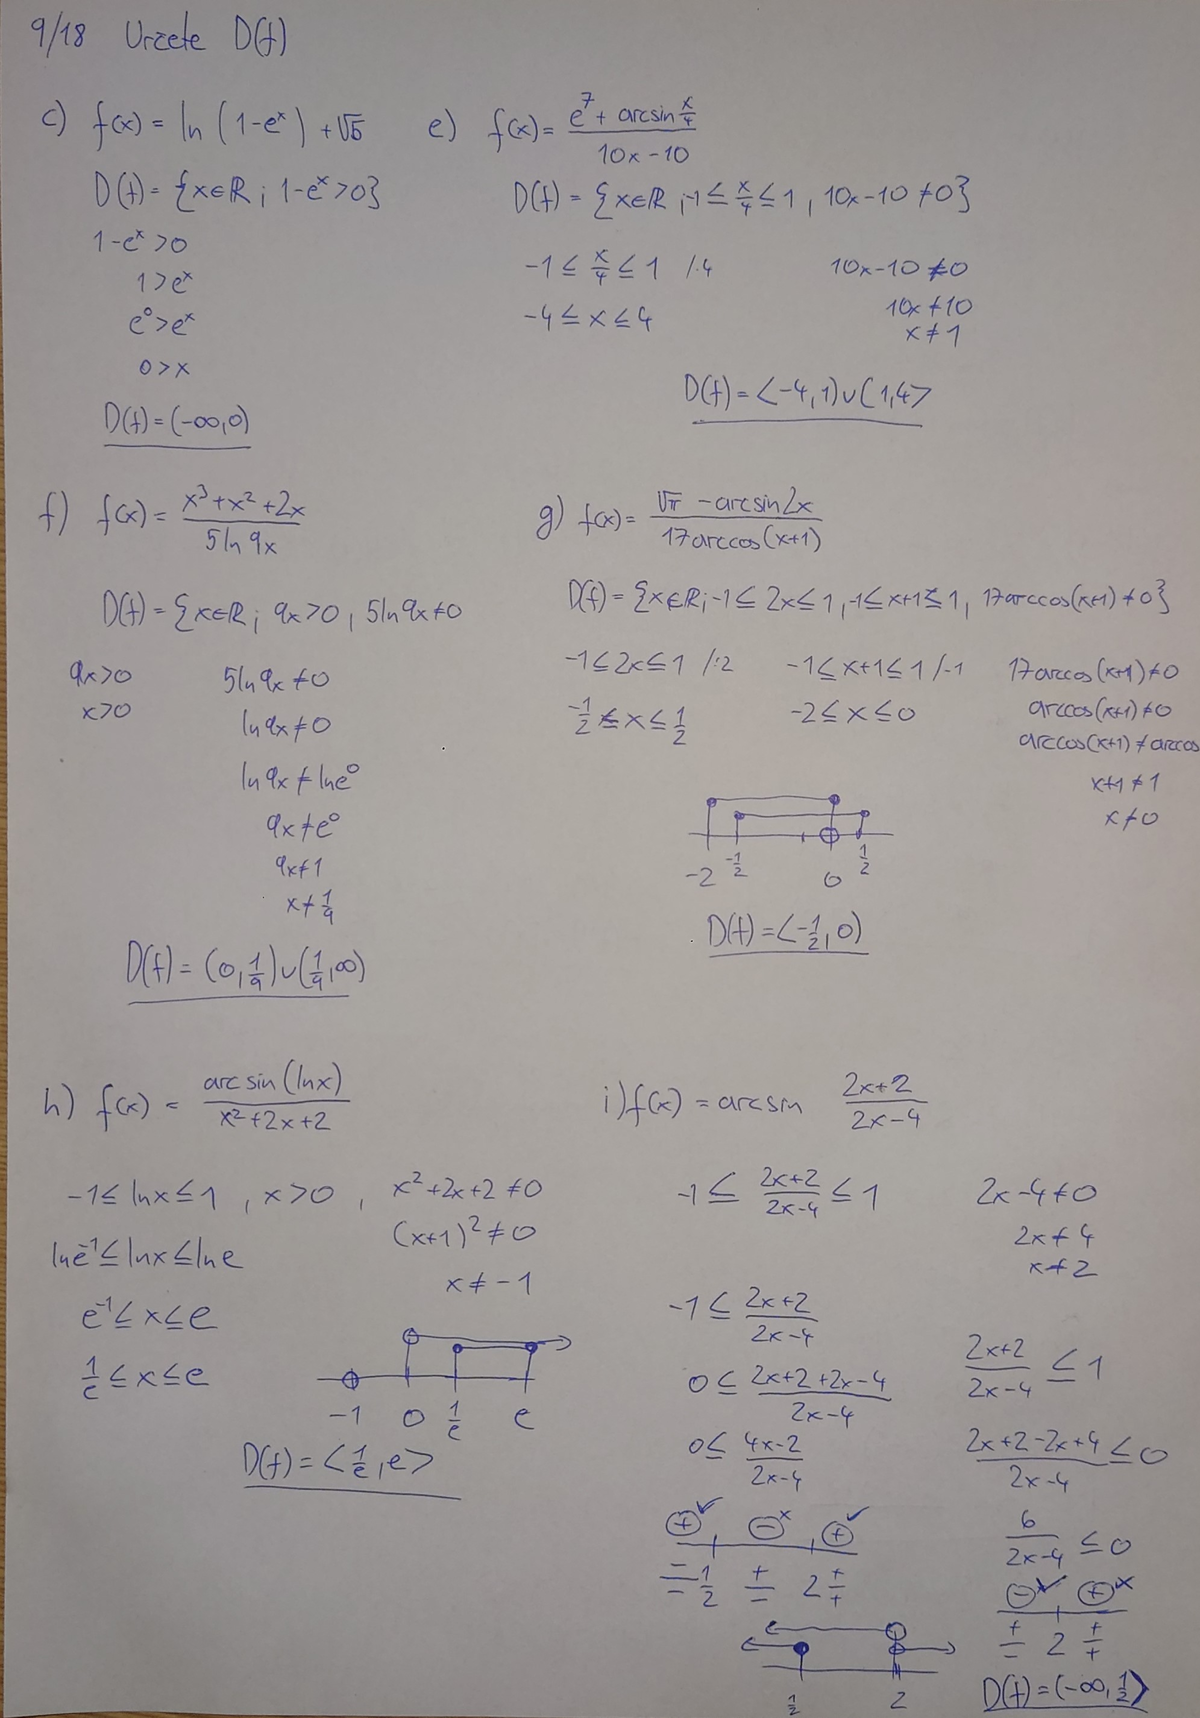 9/18 Určete D(f)
c) f(x) = ln (1-e^x) + √5
D(f) = {x∈R ; 1-e^x>0}
1-e^x >0
1>e^x
e^0>e^x
0>x
D(f) = (-∞,0)
e) f(x) = (e^7 + arcsin x/4)/(10x-10)
D(f) = {x∈R ; -1 ≤ x/4 ≤ 1 , 10x-10 ≠0}
-1 ≤ x/4 ≤ 1 /·4
-4 ≤ x ≤ 4
10x-10 ≠0
10x ≠10
x ≠ 1
D(f) = <-4,1) ∪ (1,4>
f) f(x) = (x^3+x^2+2x)/(5 ln 9x)
D(f) = {x∈R ; 9x>0 , 5ln 9x ≠0
9x>0
x>0
5ln 9x ≠0
ln 9x ≠0
ln 9x ≠ ln e^0
9x ≠ e^0
9x≠1
x≠ 1/9
D(f) = (0, 1/9) ∪ (1/9, ∞)
g) f(x) = (√π - arcsin2x)/(17arccos(x+1))
D(f) = {x∈R ; -1 ≤ 2x ≤ 1 , -1 ≤ x+1 ≤ 1 , 17arccos(x+1) ≠0}
-1 ≤ 2x ≤ 1 /:2
-1/2 ≤ x ≤ 1/2
-1 ≤ x+1 ≤ 1 /-1
-2 ≤ x ≤ 0
17arccos(x+1) ≠0
arccos(x+1) ≠0
arccos(x+1) ≠ arccos
x+1 ≠ 1
x ≠ 0
-2 -1/2 0 1/2
D(f) = <-1/2, 0)
h) f(x) = arcsin (lnx)/(x^2+2x+2)
-1 ≤ lnx ≤ 1 , x>0 , x^2+2x+2 ≠0
(x+1)^2 ≠0
x ≠ -1
ln e^-1 ≤ lnx ≤ ln e
e^-1 ≤ x ≤ e
1/e ≤ x ≤ e
-1 0 1/e e
D(f) = <1/e, e>
i) f(x) = arcsin (2x+2)/(2x-4)
-1 ≤ (2x+2)/(2x-4) ≤ 1
2x-4 ≠0
2x ≠ 4
x ≠ 2
-1 ≤ (2x+2)/(2x-4)
0 ≤ (2x+2+2x-4)/(2x-4)
0 ≤ (4x-2)/(2x-4)
⊕ ✓ ⊖ × ⊕ ✓
-/- 1/2 +/- 2 +/+
(2x+2)/(2x-4) ≤ 1
(2x+2-2x+4)/(2x-4) ≤ 0
6/(2x-4) ≤ 0
⊖ ✓ ⊕ ×
+/- 2 +/+
1/2 2
D(f) = (-∞, 1/2>